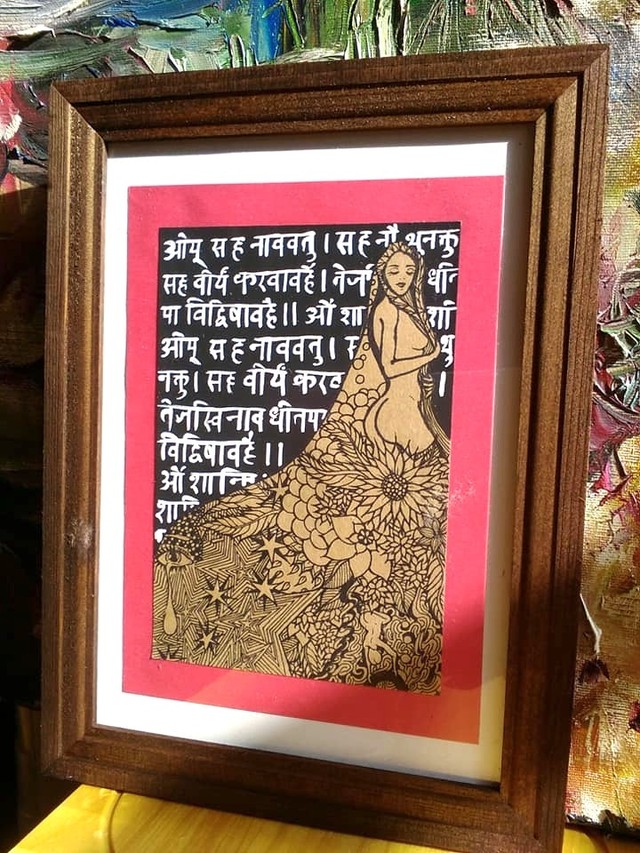 ओम् सह नाववतु । सह नौ भुनक्तु
सह वीर्यं करवावहै । तेज
मा विद्विषावहै ।। ओं शा
ओम् सह नाववतु ।
नक्तु । सह वीर्यं करव ।
तेजस्वि नाव धीतमा
विद्विषावहै ।।
ओं शान्ति
शा